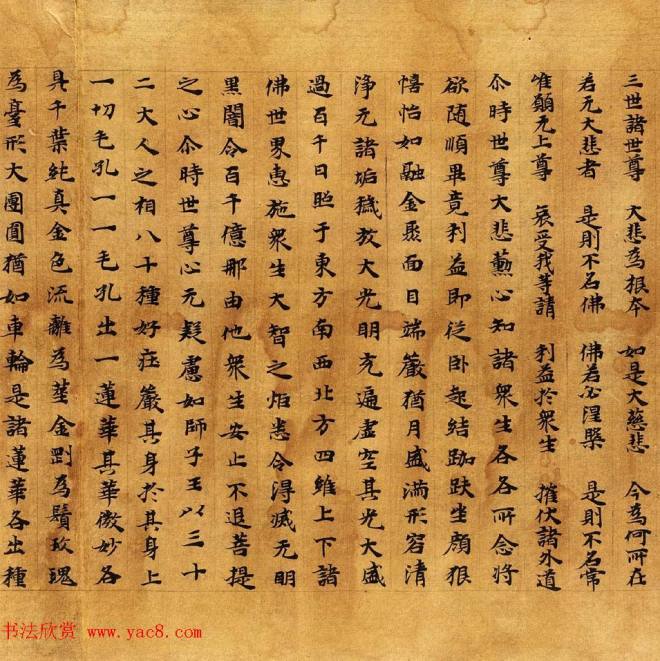 三世諸世尊 大悲為根本 如是大慈悲 今為何所在
若无大悲者 是則不名佛 佛若必涅槃 是則不名常
唯願无上尊 哀受我等請 利益於衆生 摧伏諸外道
尒時世尊大悲勳心知諸衆生各各所念將
欲随順畢竟利益即從卧起結跏趺坐顔貌
憘怡如融金聚面目端嚴猶月盛滿形容清
浄无諸垢穢放大光明充遍虚空其光大盛
過百千日照于東方南西北方四維上下諸
佛世界惠施衆生大智之炬悉令得滅无明
黑闇令百千億那由他衆生安止不退菩提
之心尒時世尊心无疑慮如師子王以三十
二大人之相八十種好莊嚴其身於其身上
一切毛孔一一毛孔出一蓮華其華微妙各
具千葉純真金色流離為莖金剛為鬚玫瑰
為臺形大團圓猶如車輪是諸蓮華各出種
书法欣赏 www.yac8.com